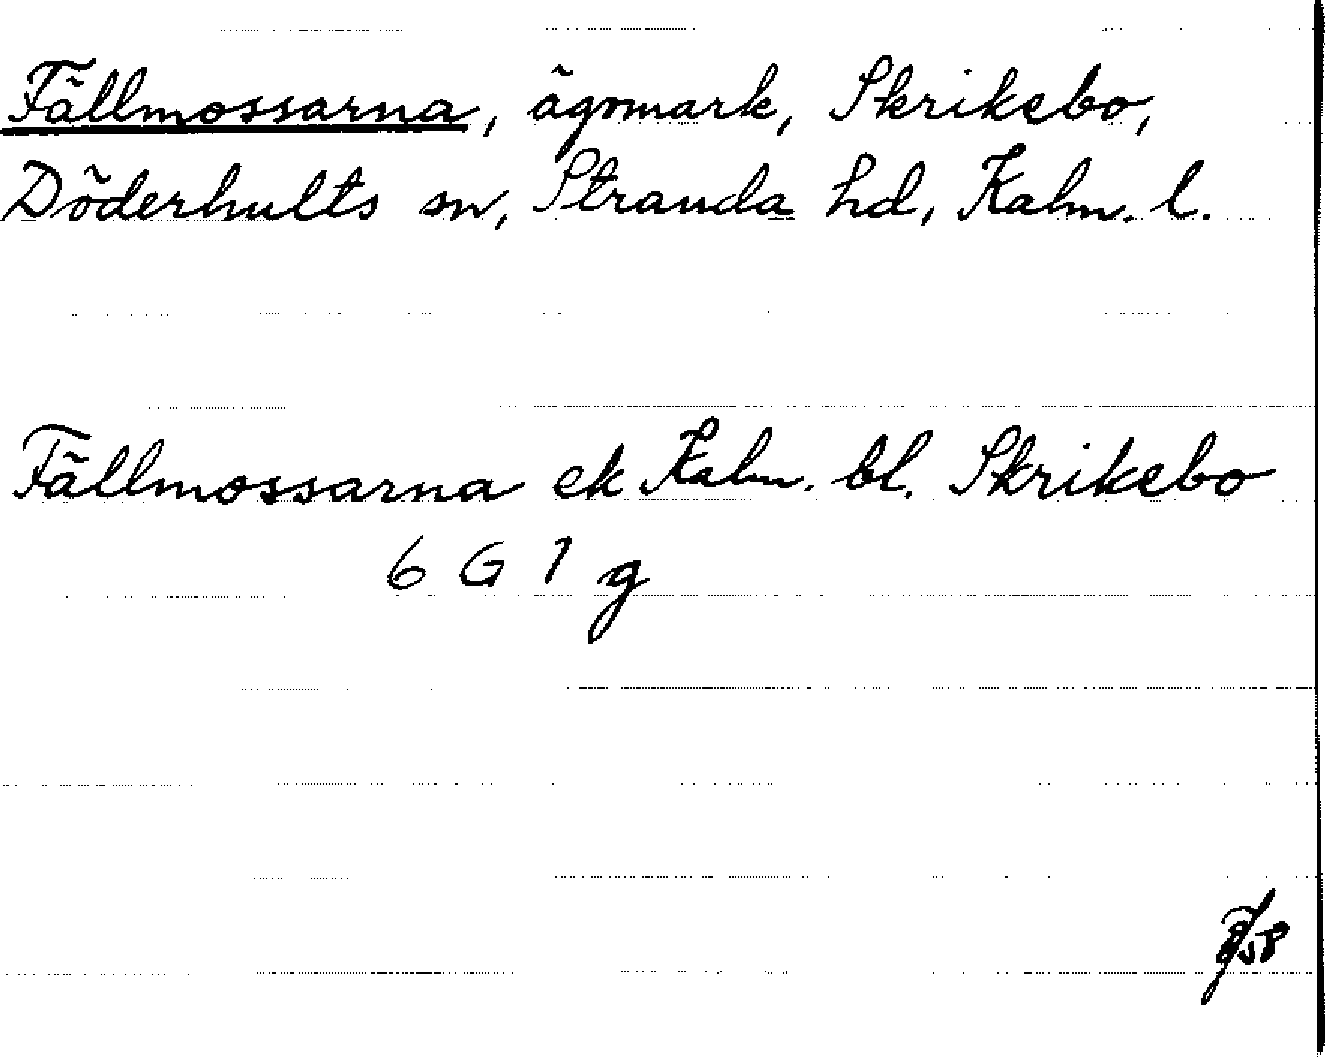 Fällmossarna, ägomark, Skrikebo,
Döderhults sn, Stranda hd, Kalm. l.
Fällmossarna ek Kalm. bl. Skrikebo
6 G 1 g